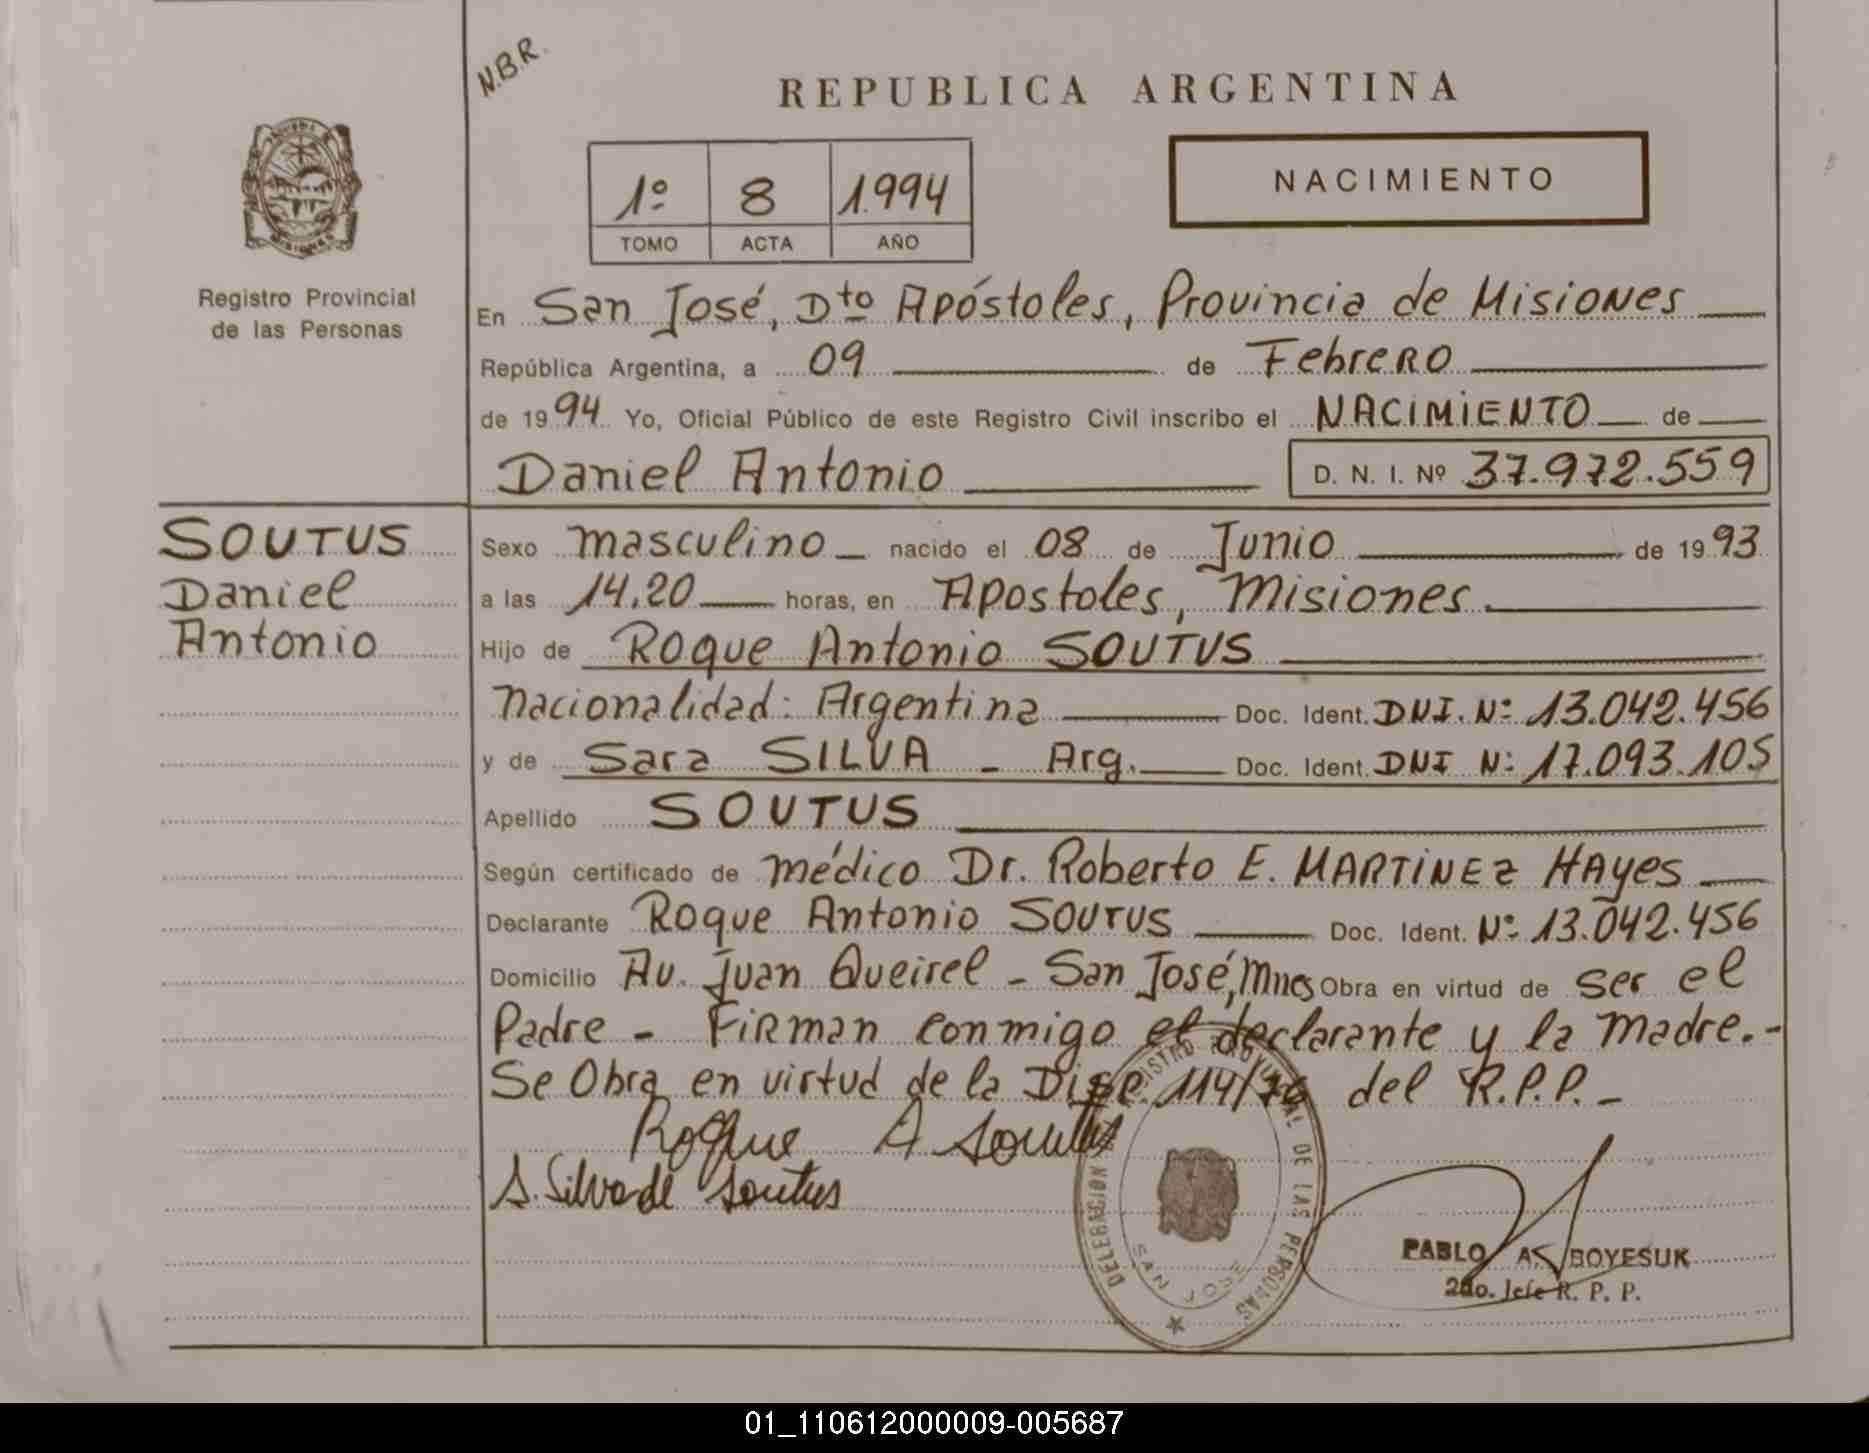 N.B.R.
REPUBLICA ARGENTINA
1º 8 1.994
TOMO ACTA AÑO
NACIMIENTO
Registro Provincial
de las Personas
En San José, Dto Apóstoles, Provincia de Misiones
República Argentina, a 09 de Febrero
de 1994 Yo, Oficial Público de este Registro Civil inscribo el NACIMIENTO de
Daniel Antonio D. N. I. Nº 37.972.559
SOUTUS
Daniel
Antonio
Sexo masculino nacido el 08 de Junio de 1993
a las 14.20 horas, en Apostoles, Misiones
Hijo de Roque Antonio SOUTUS
Nacionalidad: Argentina Doc. Ident. DNI. Nº 13.042.456
y de Sara SILVA - Arg. Doc. Ident. DNI Nº 17.093.105
Apellido SOUTUS
Según certificado de médico Dr. Roberto E. MARTINEZ HAyes
Declarante Roque Antonio SOUTUS Doc. Ident. Nº 13.042.456
Domicilio Av. Juan Queirel - San José, Mnes Obra en virtud de ser el
Padre - Firman conmigo el declarante y la madre.-
Se Obra en virtud de la Disp. 114/76 del R.P.P. -
Roque A Soutus
S. Silva de Soutus
DELEGACION REGISTRO PROVINCIAL DE LAS PERSONAS
SAN JOSE
PABLO A. BOYESUK
2do. Jefe R. P. P.
01_110612000009-005687